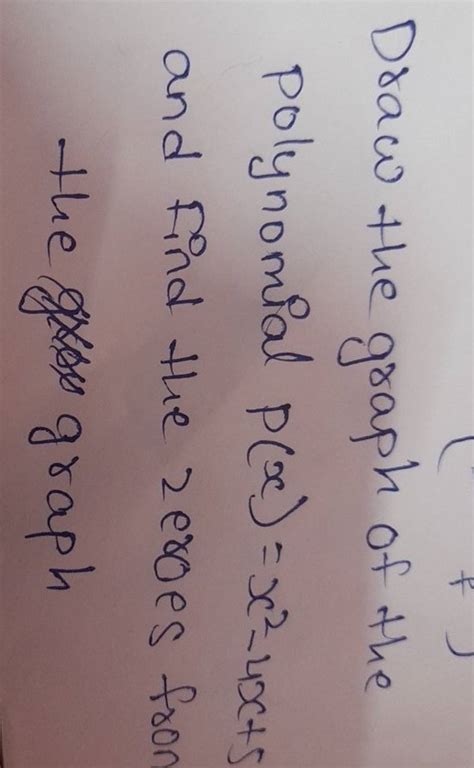 Draw the graph of the
polynomial p(x) = x² - 4x + 5
and find the zeroes from
the graph